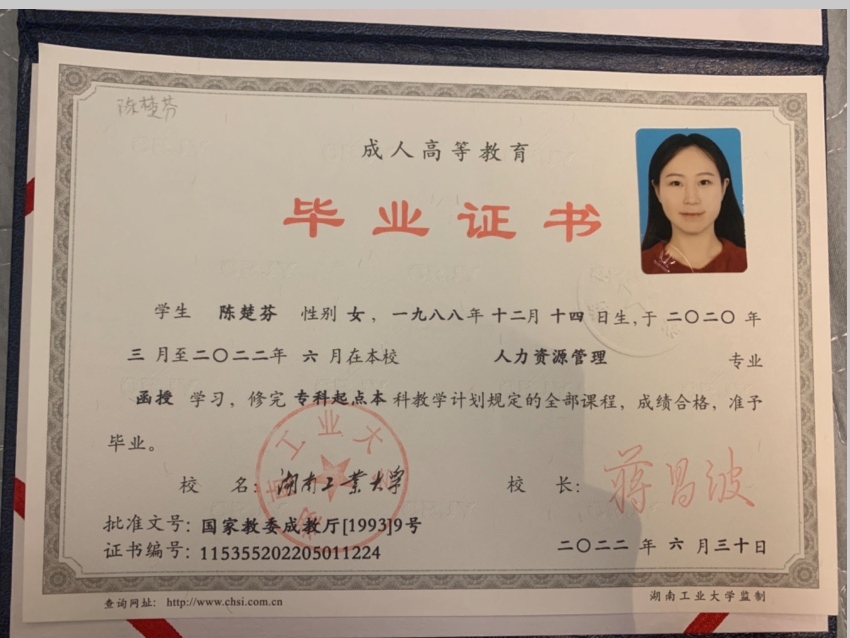 陈楚芬
成人高等教育
毕业证书
学生 陈楚芬 性别 女，一九八八年 十二月 十四 日生，于 二〇二〇 年
三 月至二〇二二年 六 月在本校 人力资源管理 专业
函授 学习，修完 专科起点本 科教学计划规定的全部课程，成绩合格，准予
毕业。
校 名：湖南工业大学 校 长：蒋昌波
批准文号：国家教委成教厅[1993]9号
证书编号：115355202205011224
二〇二二 年 六 月三十日
查询网址：http://www.chsi.com.cn
湖南工业大学监制